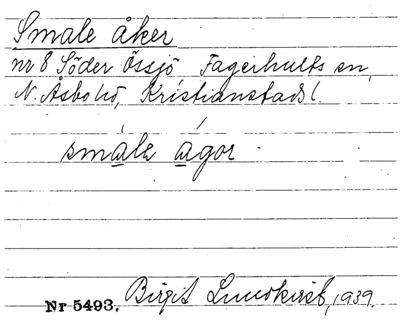 Smale åker
nr 8 Söder Össjö, Fagerhults sn,
N. Åsbo hd, Kristianstads l.
småla ågor
Nr 5493. Birgit Lundkvist, 1939.